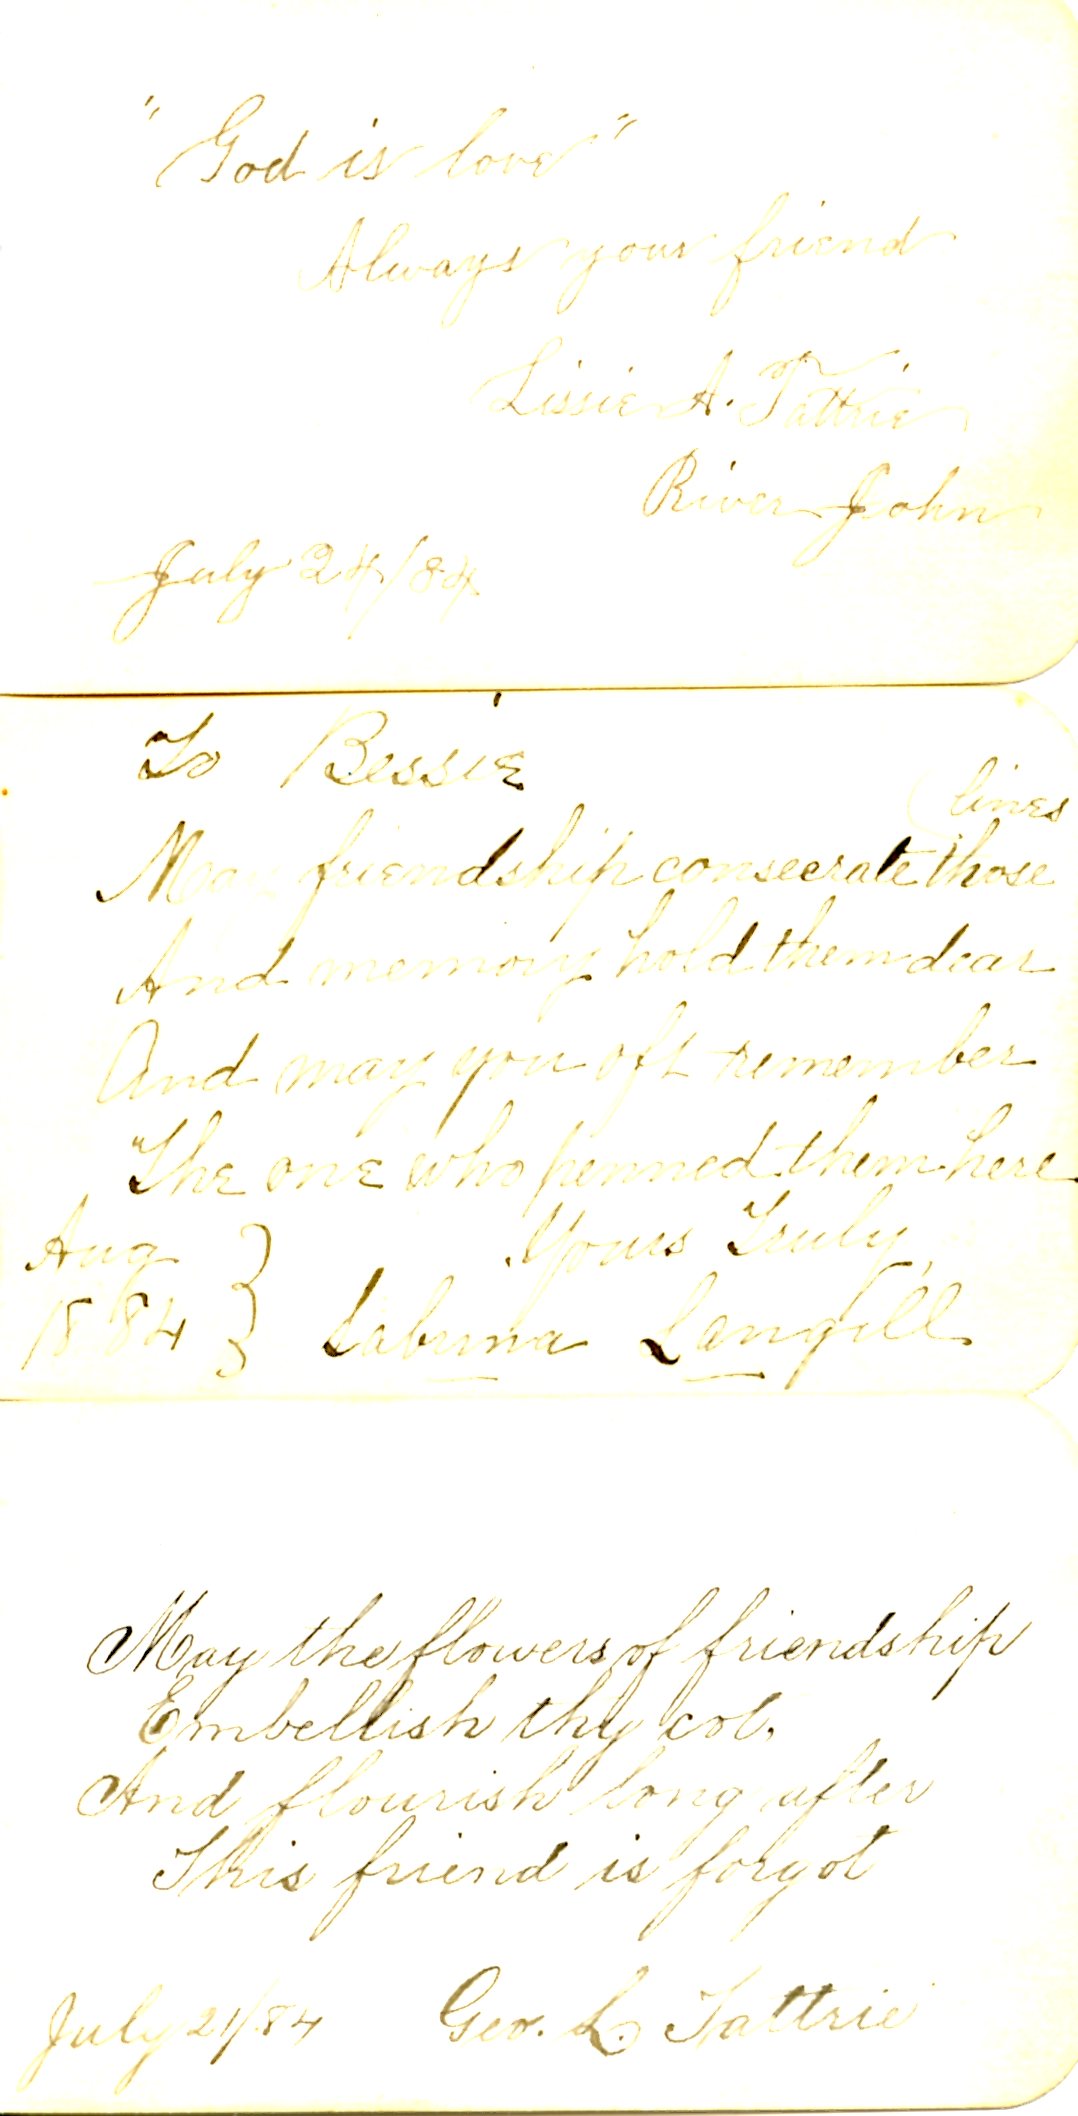 "God is love"
Always your friend
Lissie A. Tattrie
River John
July 24/84
To Bessie
lines
May friendship consecrate those
And memory hold them dear
And may you oft remember
The one who penned them here
Yours Truly,
Aug
1884
Sabrina Langill
May the flowers of friendship
Embellish thy cot,
And flourish long after
This friend is forgot
July 21/84 Geo. L. Tattrie